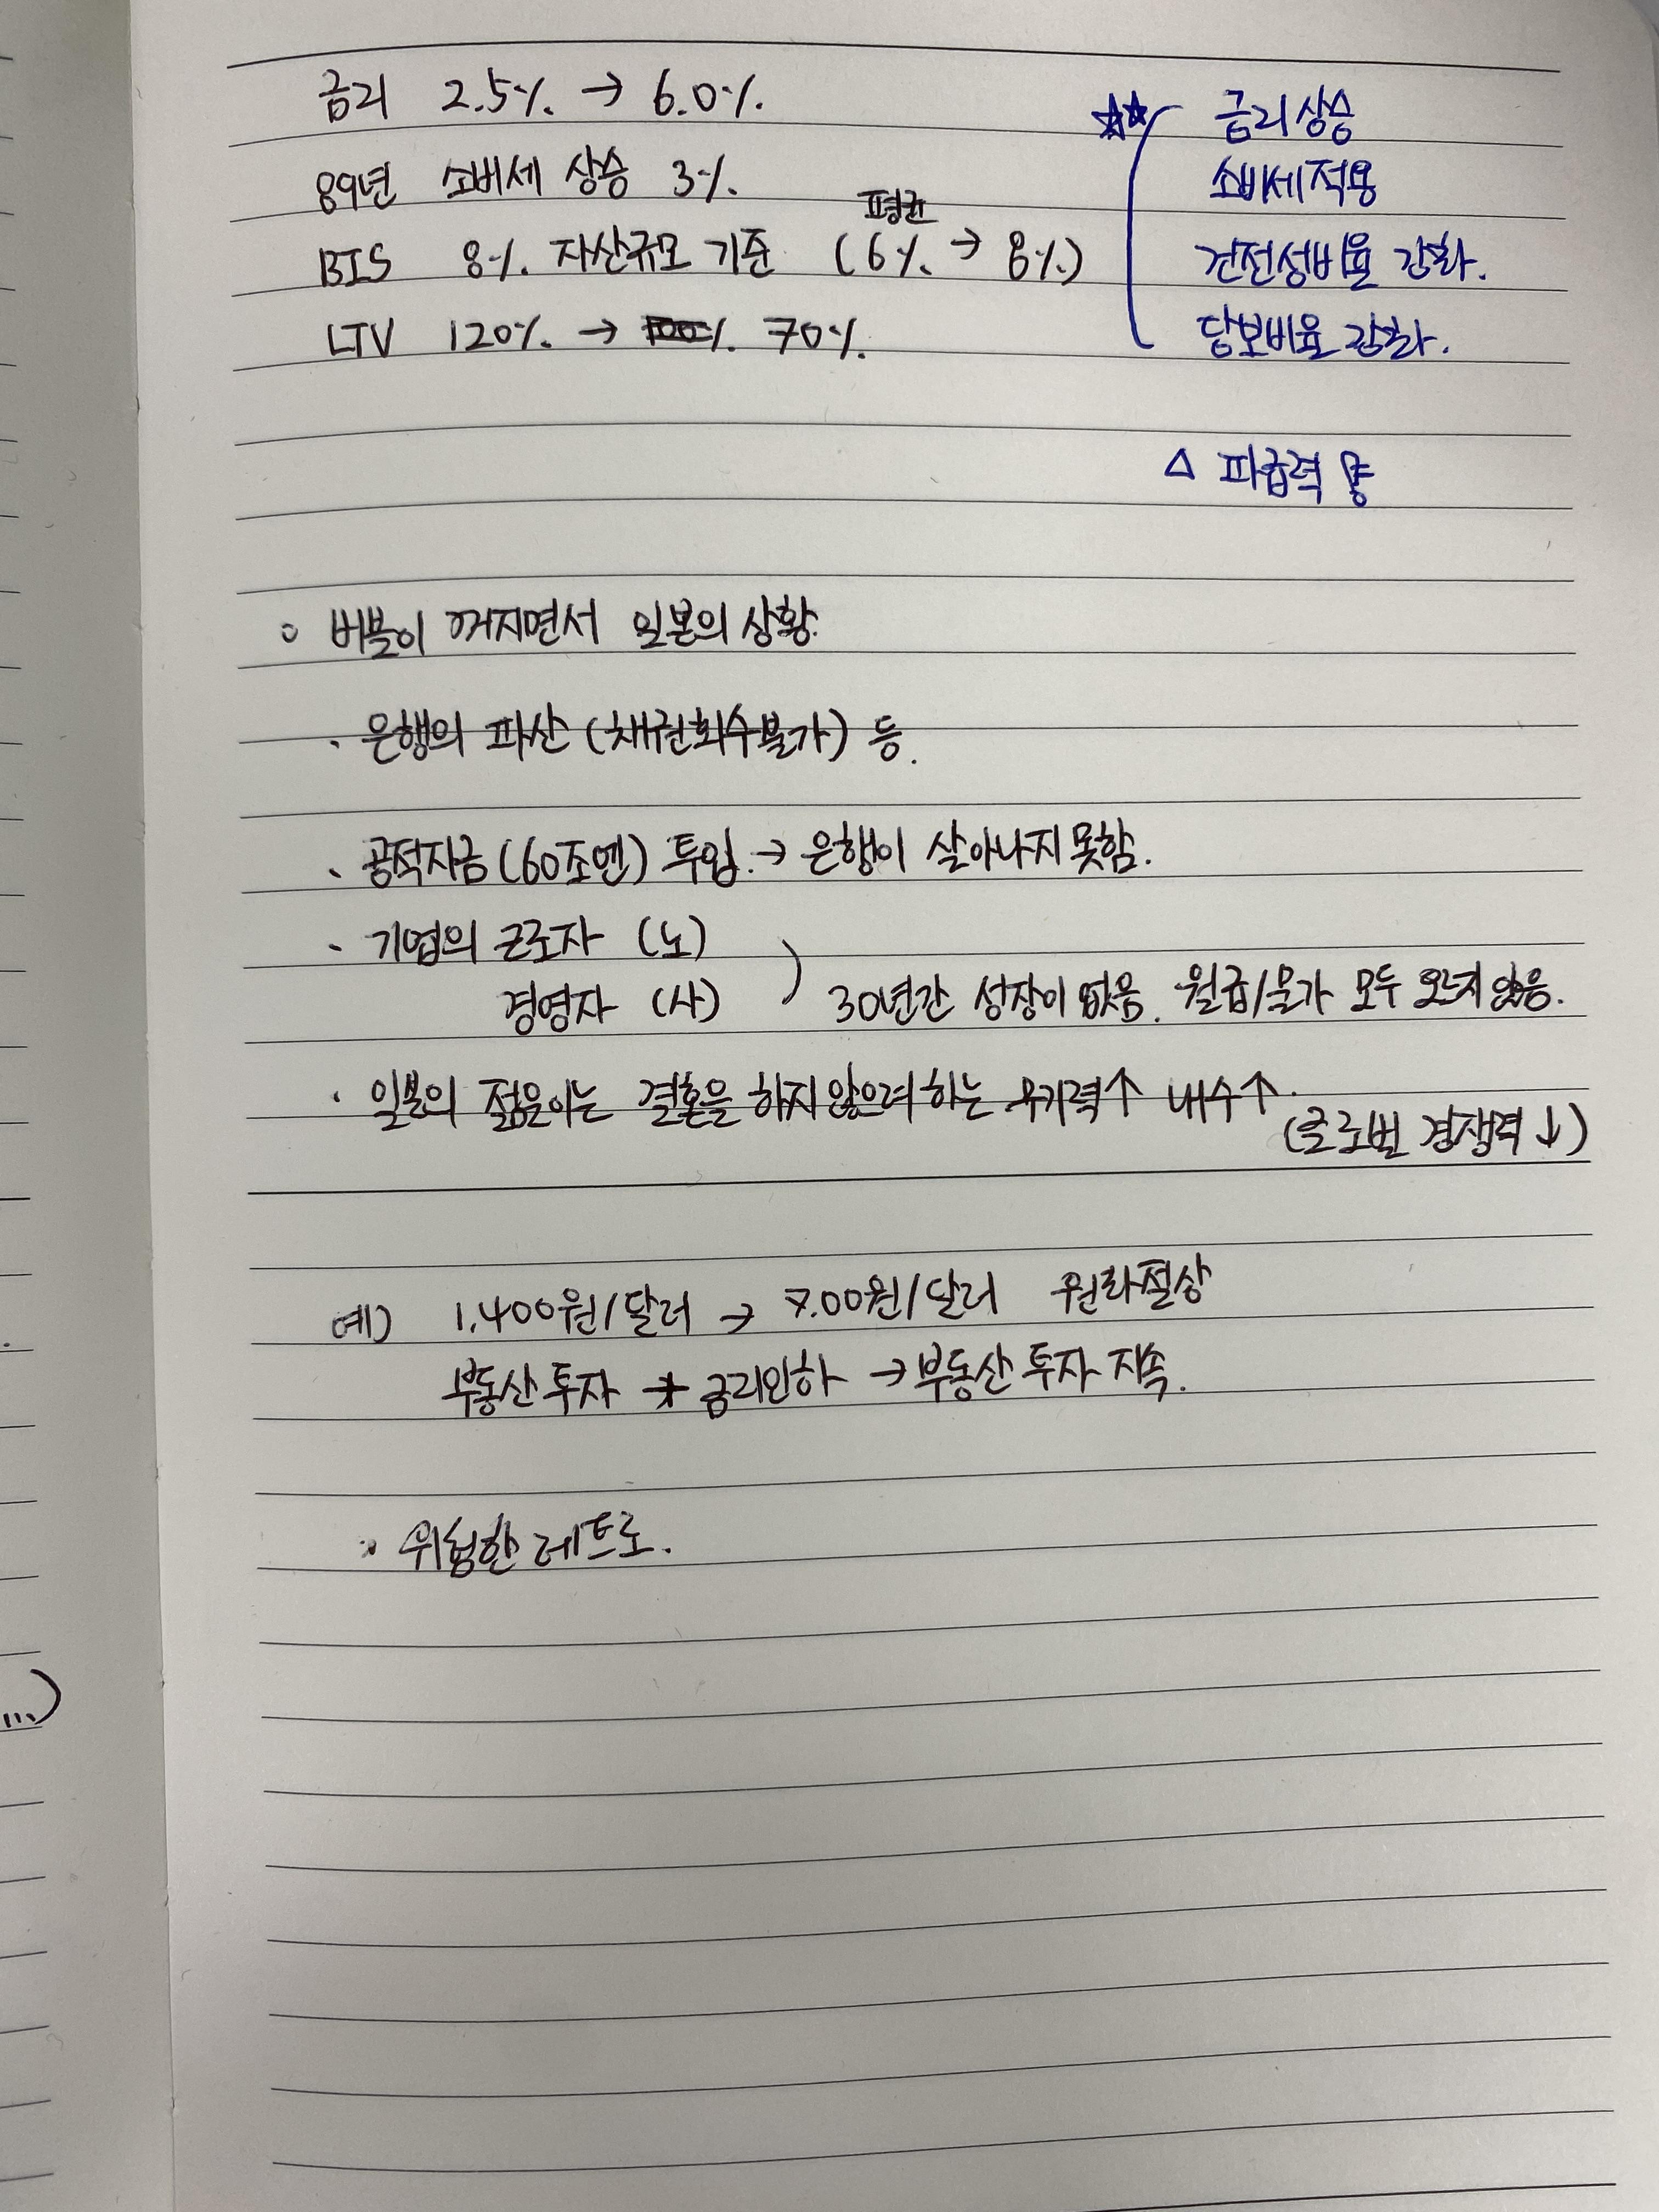 금리 2.5% → 6.0%
89년 소비세 상승 3%
평균
BIS 8% 자산규모 기준 (6% → 8%)
LTV 120% → 70%
☆☆ 금리상승
소비세적용
건전성비율 강화.
담보비율 강화.
△ 파급력
○ 버블이 꺼지면서 일본의 상황.
· 은행의 파산 (채권회수불가) 등.
· 공적자금(60조엔) 투입. → 은행이 살아나지 못함.
· 기업의 근로자 (노)
경영자 (사) ) 30년간 성장이 없음. 월급/물가 모두 오르지 않음.
· 일본의 젊은이는 결혼을 하지 않으려 하는 무기력↑ 내수↑.
(글로벌 경쟁력↓)
예) 1,400원/달러 → 7.00원/달러 원화절상
부동산 투자 → 금리인하 → 부동산 투자 지속.
· 위험한 레트로.
...)